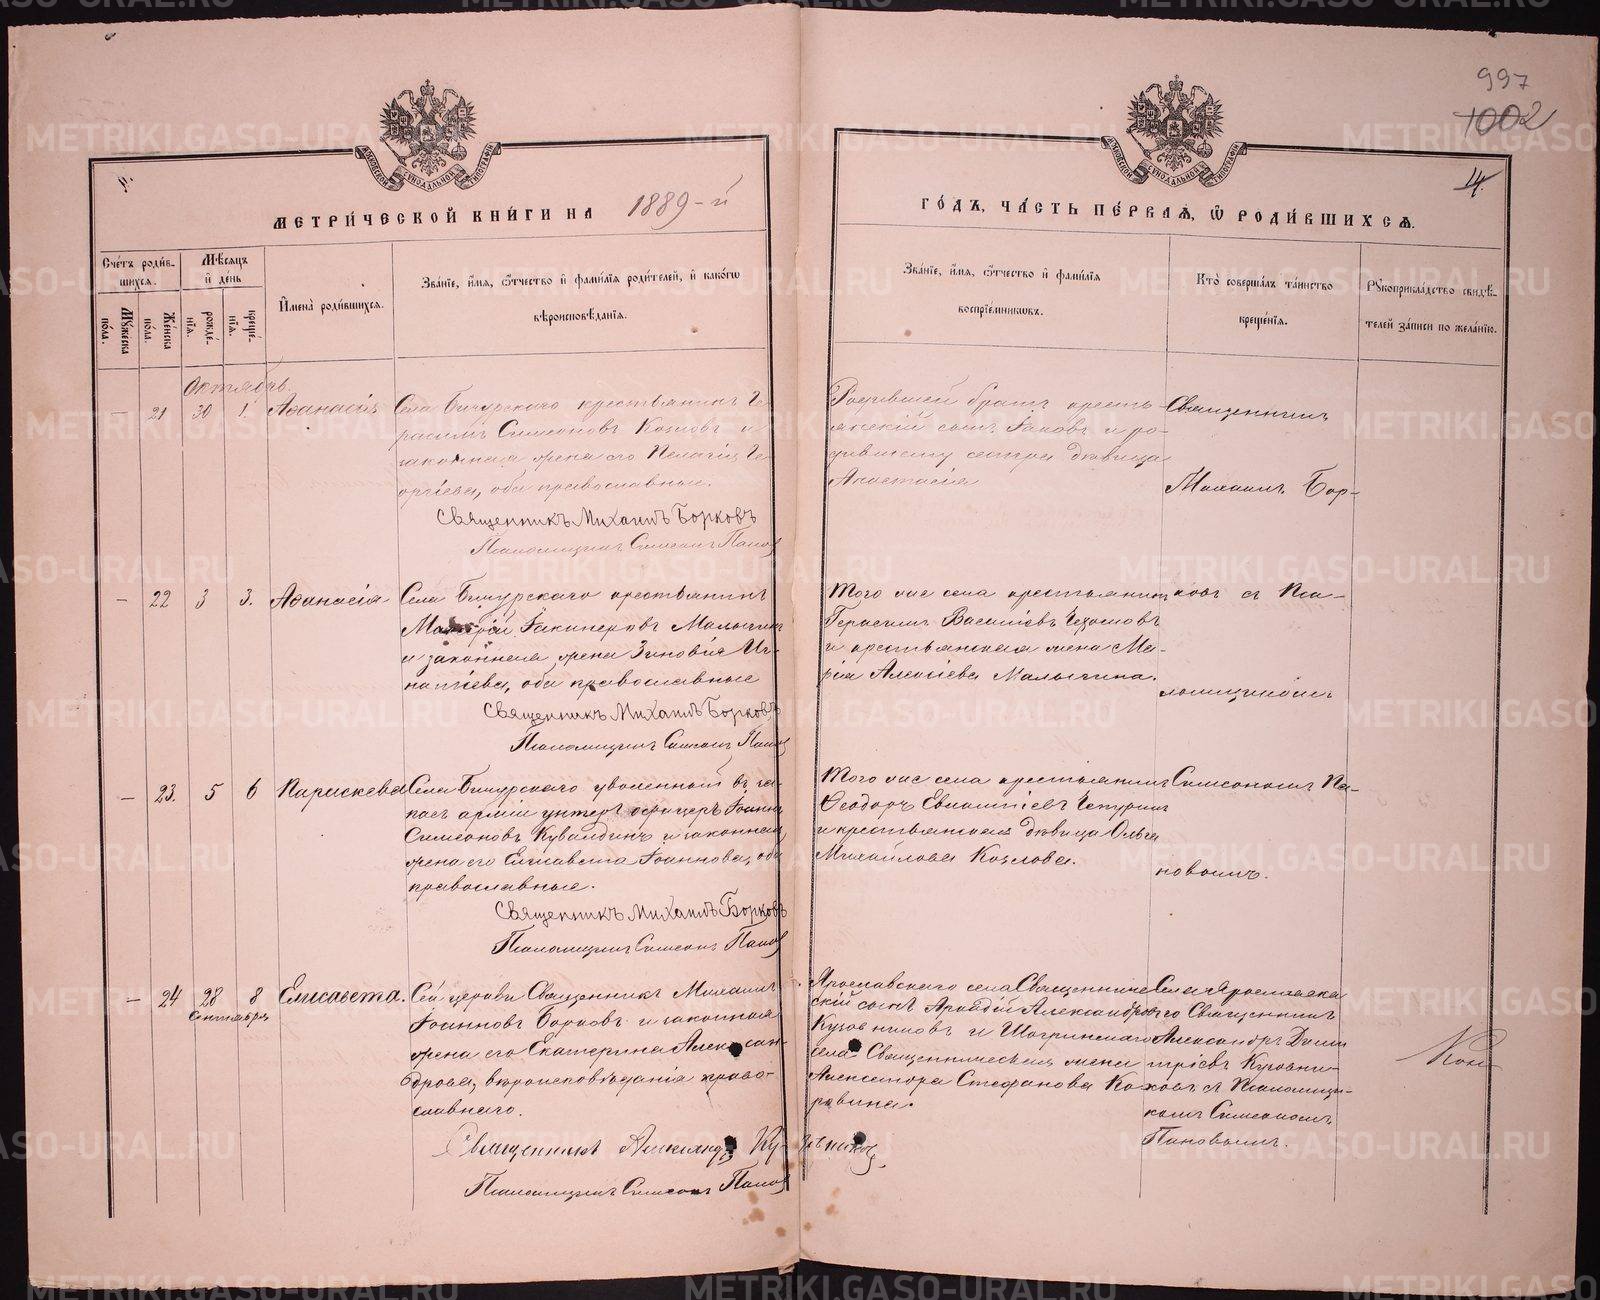 997
1002
4.
МЕТРИ́ЧЕСКОЙ КНИ́ГИ НА 1889-й
ГО́ДЪ, ЧА́СТЬ ПЕ́РВАѦ, Ѡ҆ РОДИ́ВШИХСѦ.
Сче́тъ роди́в-
шихсѧ.
Мꙋжеска по́ла.
Же́нска по́ла.
Мѣ́сѧцъ и҆ де́нь
рожде́-
нїѧ.
креще́-
нїѧ.
И҆мена̀ роди́вшихсѧ.
Зва́нїе, и҆́мѧ, ѻ҆́тчество и҆ фами́лїѧ роди́телей, и҆ како́гѡ
вѣроисповѣ́данїѧ.
Зва́нїе, и҆́мѧ, ѻ҆́тчество и҆ фами́лїѧ
воспрїе́мникѡвъ.
Кто̀ соверша́лъ та́инство
креще́нїѧ.
Рꙋкоприкла́дство свидѣ́-
телей за́писи по жела́нїю.
Октябрь.
— 21 30 1. Аѳанасія
Села Бичурскаго крестьянинъ Ге-
расимъ Симеоновъ Козловъ и
законная жена его Пелагія Ге-
оргіева, оба православные.
Священникъ Михаилъ Борковъ
Псаломщикъ Симеонъ Пановъ
Родившей братъ кресть-
янскій сынъ Іаковъ и ро-
дившему сестра дѣвица
Анастасія
Священникъ
Михаилъ Бор-
— 22 3 3. Аѳанасія
Села Бичурскаго крестьянинъ
Малыгинъ
и законная жена Зиновія Иг-
натіева, оба православные
Священникъ Михаилъ Борковъ
Псаломщикъ Симеонъ Пановъ
Того же села крестьянинъ
Герасимъ Василіевъ
и крестьянская жена Ма-
рія Алексіева Малыгина.
ковъ съ Пса-
ломщикомъ
— 23. 5 6 Параскева
Села Бичурскаго уволенный въ за-
пасъ арміи унтеръ-офицеръ Іоаннъ
Симеоновъ Кувалдинъ и законная
жена его Елисавета Іоаннова, оба
православные.
Священникъ Михаилъ Борковъ
Псаломщикъ Симеонъ Пановъ
Того же села крестьянинъ
Ѳеодоръ
и крестьянская дѣвица Ольга
Михайлова Козлова.
Симеономъ Па-
новымъ.
— 24 28 8 Елисавета.
Сентября
Сей церкви Священникъ Михаилъ
Іоанновъ Борковъ и законная
жена его Екатерина Алексан-
дрова, вѣроисповѣданія право-
славнаго.
Священникъ Александръ Кузовниковъ
Псаломщикъ Симеонъ Пановъ
Ярославскаго села Священниче-
скій сынъ Аркадій Александровъ
Кузовниковъ и Шогринскаго
села Священническая жена
Александра Стефанова Ко-
ровина.
Села Ярославска-
го Священникъ
Александръ Дими-
тріевъ Кузовни-
ковъ съ Псаломщи-
комъ Симеономъ
Пановымъ.
METRIKI.GASO-URAL.RU